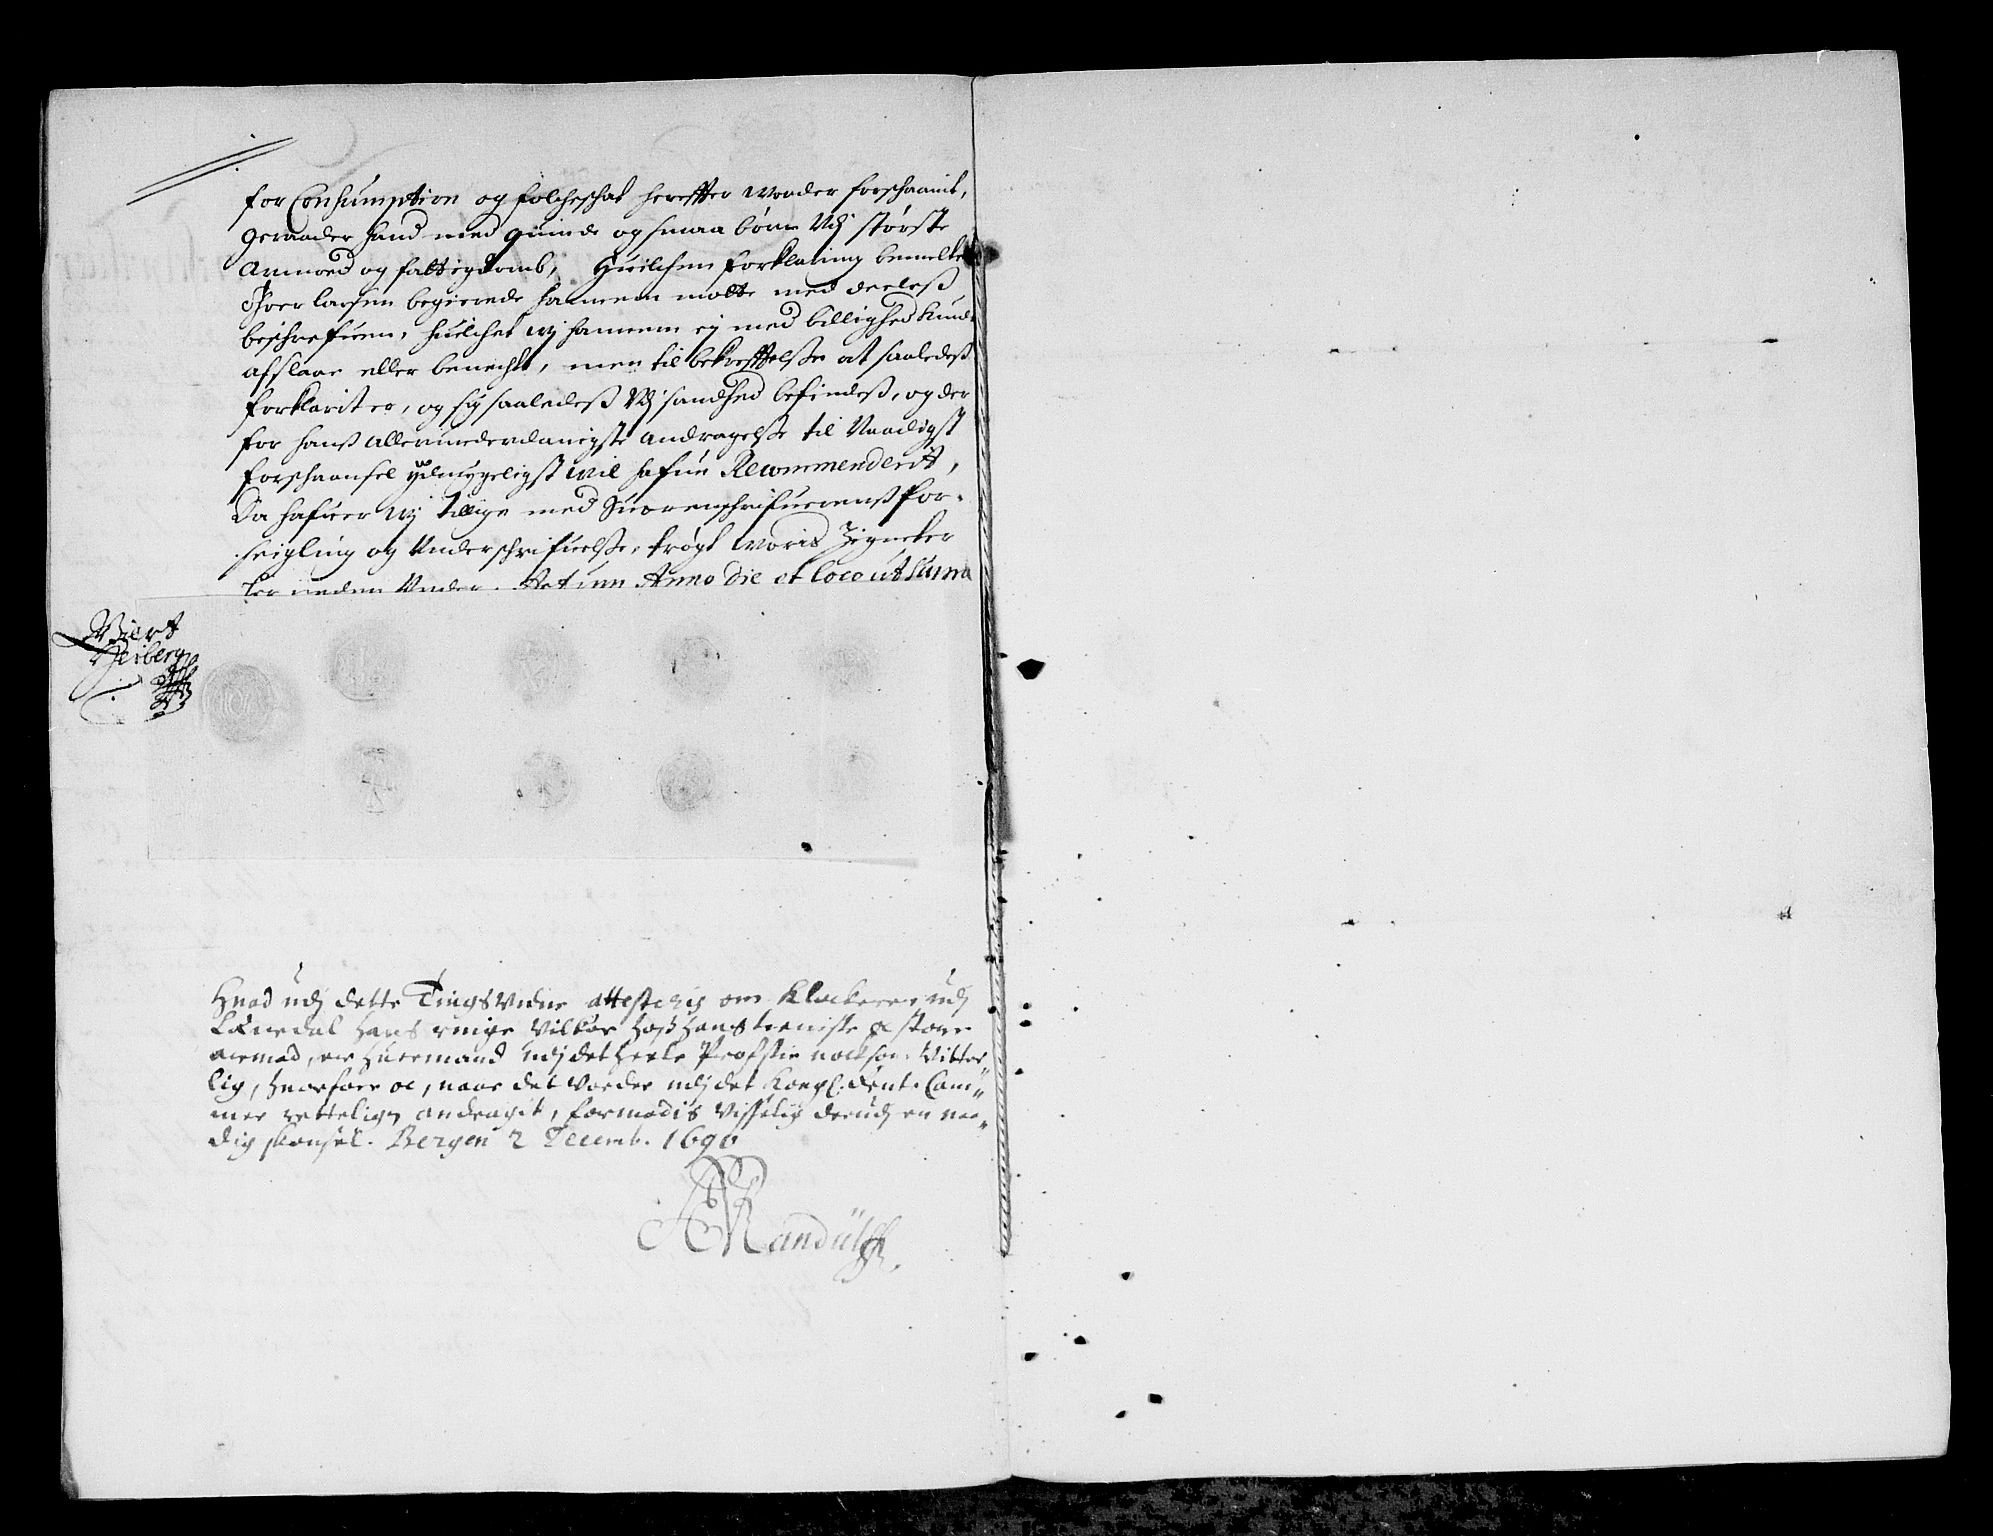 for Consumption og folcheschat hereffter worder forschaanit,
geraader hand med quinde og smaa børn Udj største
armoed og fattigdomb, Huilchen forklaring bemelte
Iffver larsen begierede hannem motte med deeles
beschrefuen, huilchet wj hannem ej med billighed kunde
afslaae eller benechte, men til bekrefftelsse at saaledeß
forklarit er, og sig saaledeß Udj sandhed befindeß, og der
for hanß allerunderdanigste andragelsse til Naadigst
forschaansel ydmygeligst wil hafue Recommenderit,
Da hafuer wj tillige med Suorenschrifuerenß for-
seigling og Underschrifuelsse, trøgt woris Zigneter
her neden Under. Actum Anno die et loco ut supra
Wiert
Heiberg
Hvad udj dette Tings Vidne attesteris om Klockeren udj
Lærdal Hans ringe Vilkor hoß hans tieniste oc store
armod, er huermand udj det heele Profstie nocksom Vitter-
lig, huorfore oc, naar det vorder udj det Kongl. Rente Cam-
mer rettelig andragit, formodis Visselig derudj en naa-
dig skonsel. Bergen 2 Decemb. 1690
Randulff